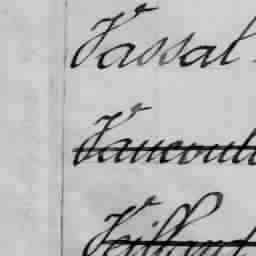 Vassal
Vaucoul
Vaillant